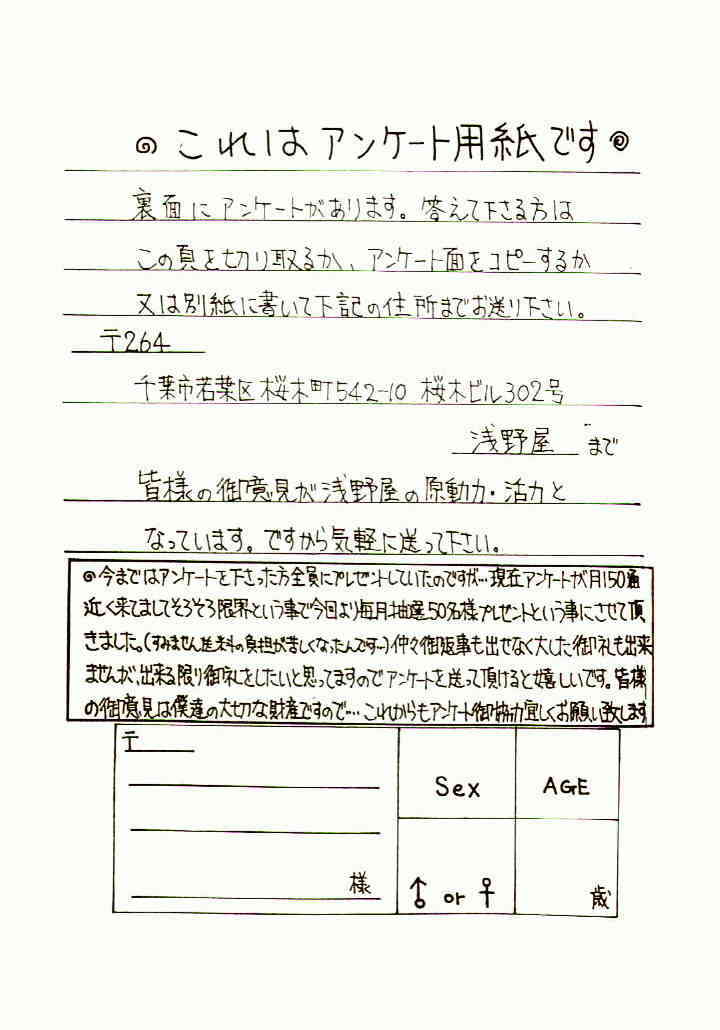 これはアンケート用紙です
裏面にアンケートがあります。答えて下さる方は
この頁を切り取るか、アンケート面をコピーするか
又は別紙に書いて下記の住所までお送り下さい。
〒264
千葉市若葉区桜木町542-10 桜木ビル302号
浅野屋 まで
皆様の御意見が浅野屋の原動力・活力と
なっています。ですから気軽に送って下さい。
◎今まではアンケートを下さった方全員にプレゼントしていたのですが…現在アンケートが月150通
近く来てましてそろそろ限界という事で今回より毎月抽選50名様プレゼントという事にさせて頂
きました。(すみません送料の負担が苦しくなったんです~)仲々御返事も出せなく大した御礼も出来
ませんが、出来る限り御礼をしたいと思ってますのでアンケートを送って頂けると嬉しいです。皆様
の御意見は僕達の大切な財産ですので…これからもアンケート御協力宜しくお願い致します
〒
Sex AGE
様 ♂ or ♀ 歳